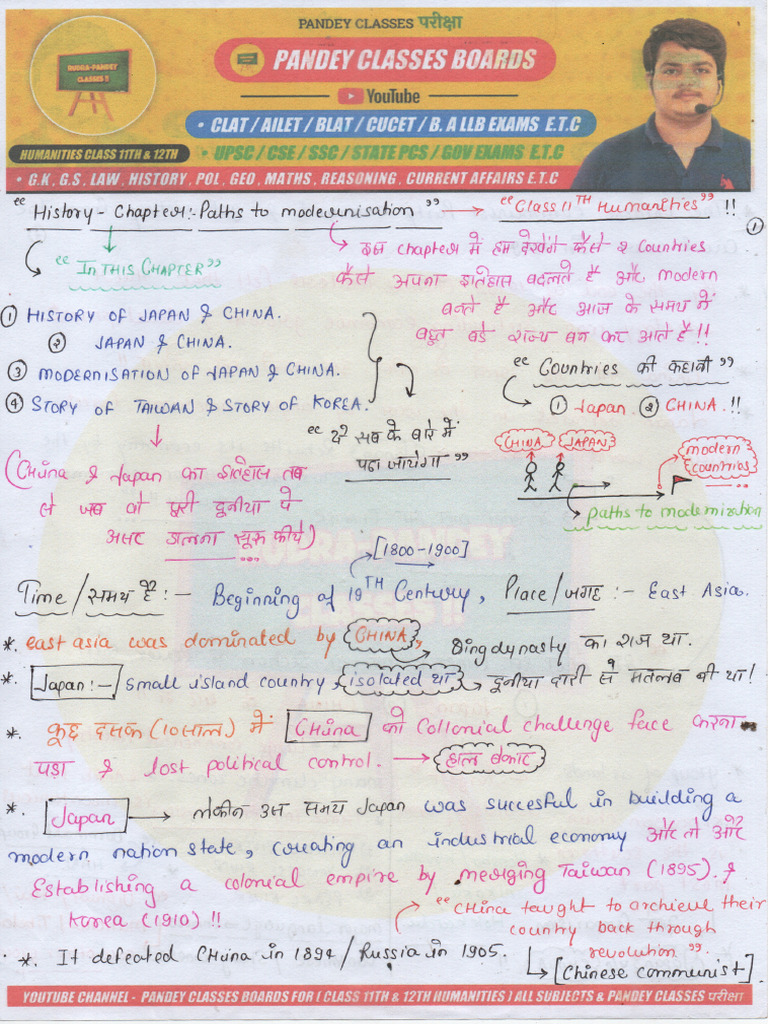 PANDEY CLASSES परीक्षा
RUDRA-PANDEY
CLASSES !!
PANDEY CLASSES BOARDS
YouTube
• CLAT / AILET / BLAT / CUCET / B. A LLB EXAMS E.T.C
HUMANITIES CLASS 11TH & 12TH
• UPSC / CSE / SSC / STATE PCS / GOV EXAMS E.T.C
• G.K , G.S , LAW , HISTORY , POL , GEO , MATHS , REASONING , CURRENT AFFAIRS E.T.C
"History - Chapter:- Paths to modernisation" → "Class 11TH Humanities" !!
①
"IN THIS CHAPTER"
इस chapter में हम देखेंगे कैसे 2 countries
कैसे अपना इतिहास बदलते है और modern
बनते है और आज के समय में
बहुत बडे राज्य बन कर आते है !!
① HISTORY OF JAPAN & CHINA.
② JAPAN & CHINA.
③ MODERNISATION OF JAPAN & CHINA.
④ STORY OF TAIWAN & STORY OF KOREA.
"ये सब के बारे में
पढा जायेगा"
"Countries की कहानी"
① Japan ② CHINA .!!
CHINA JAPAN
modern
countries
paths to modernization
(CHINA & Japan का इतिहास तब
से जब वो पूरी दुनीया पे
असर डालना सूरू कीये)
[1800-1900]
Time / समय है :- Beginning of 19TH Century, Place / जगह :- East Asia.
*. east asia was dominated by CHINA, → Qing dynasty का राज था.
*. Japan:- small island country, isolated था → दूनीया दारी से मतलब नी था!
*. कूछ दसक (10 साल) में CHINA को Collonial challenge face करना
पड़ा & lost political control. →
*. Japan → लेकीन उस समय Japan was succesful in building a
modern nation state, creating an industrial economy और तो और
Establishing a colonial empire by merging Taiwan (1895). &
Korea (1910) !!
"CHINA taught to archieve their
country back through
revolution".
*. It defeated CHINA in 1894 / Russia in 1905.
[Chinese communist]
YOUTUBE CHANNEL - PANDEY CLASSES BOARDS FOR ( CLASS 11TH & 12TH HUMANITIES ) ALL SUBJECTS & PANDEY CLASSES परीक्षा